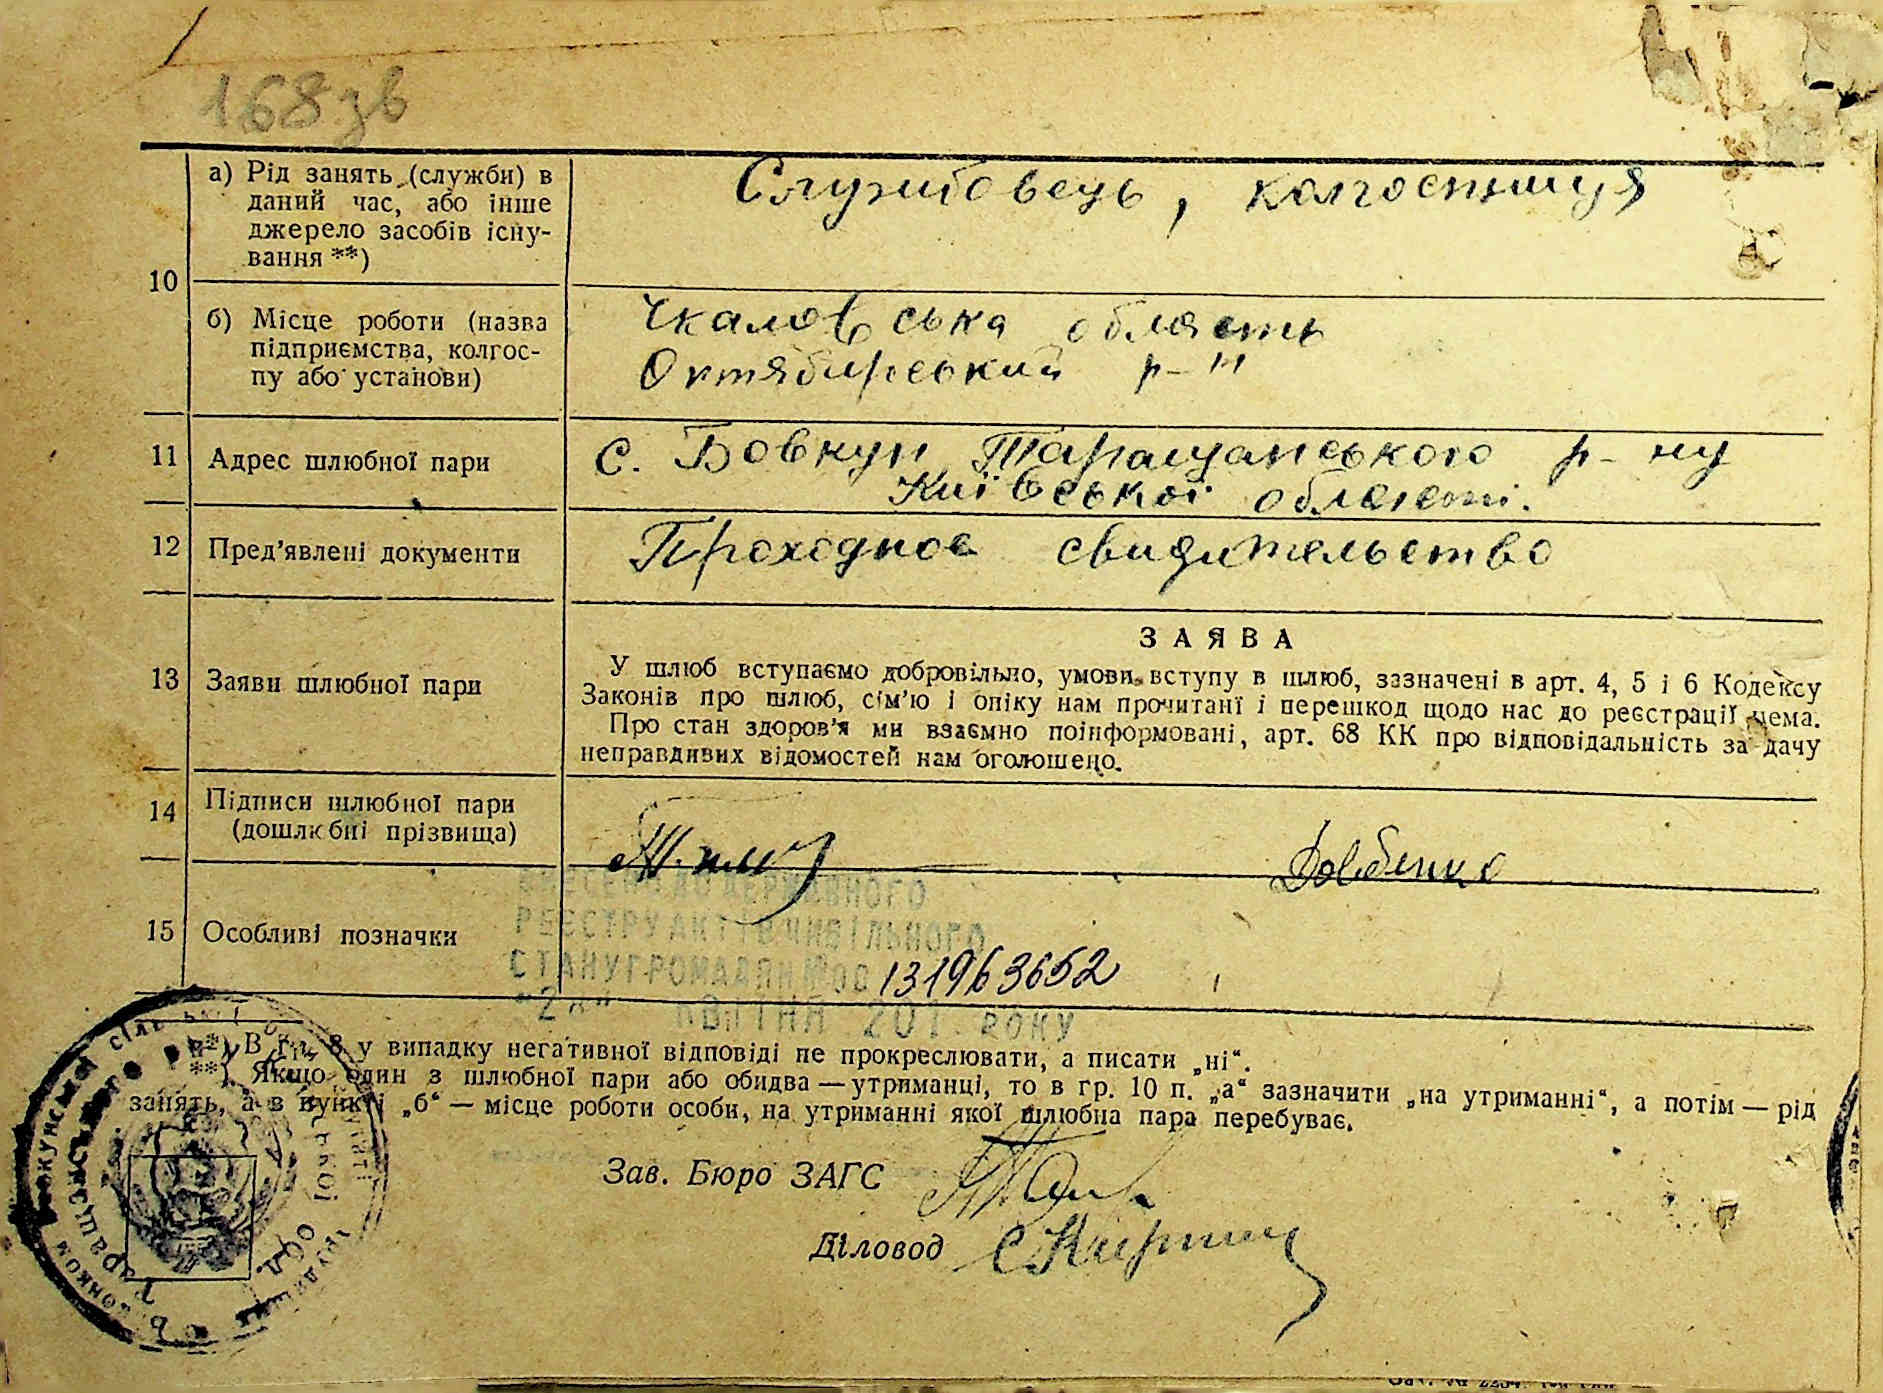 168 зв
а) Рід занять (служби) в
даний час, або інше
джерело засобів існу-
вання **)
Службовець, колгоспниця
10
б) Місце роботи (назва
підприємства, колгос-
пу або установи)
Чкаловська область
Октябирський р-н
11 Адрес шлюбної пари
с. Бовкун Таращанського р-ну
Київської області.
12 Пред’явлені документи
Проходное свидительство
13 Заяви шлюбної пари
ЗАЯВА
У шлюб вступаємо добровільно, умови вступу в шлюб, зазначені в арт. 4, 5 і 6 Кодексу
Законів про шлюб, сім’ю і опіку нам прочитані і перешкод щодо нас до реєстрації нема.
Про стан здоров’я ми взаємно поінформовані, арт. 68 КК про відповідальність за дачу
неправдивих відомостей нам оголошено.
14 Підписи шлюбної пари
(дошлюбні прізвища)
Довбенко
15 Особливі позначки
ВНЕСЕНО ДО ДЕРЖАВНОГО
РЕЄСТРУ АКТІВ ЦИВІЛЬНОГО
СТАНУ ГРОМАДЯН № 00 131963652
КВІТНЯ 201 РОКУ
*) В гр. 8 у випадку негативної відповіді не прокреслювати, а писати „ні“.
**) Якщо один з шлюбної пари або обидва — утриманці, то в гр. 10 п. „а“ зазначити „на утриманні“, а потім — рід
занять, а в пункті „б“ — місце роботи особи, на утриманні якої шлюбна пара перебуває.
Зав. Бюро ЗАГС
Діловод